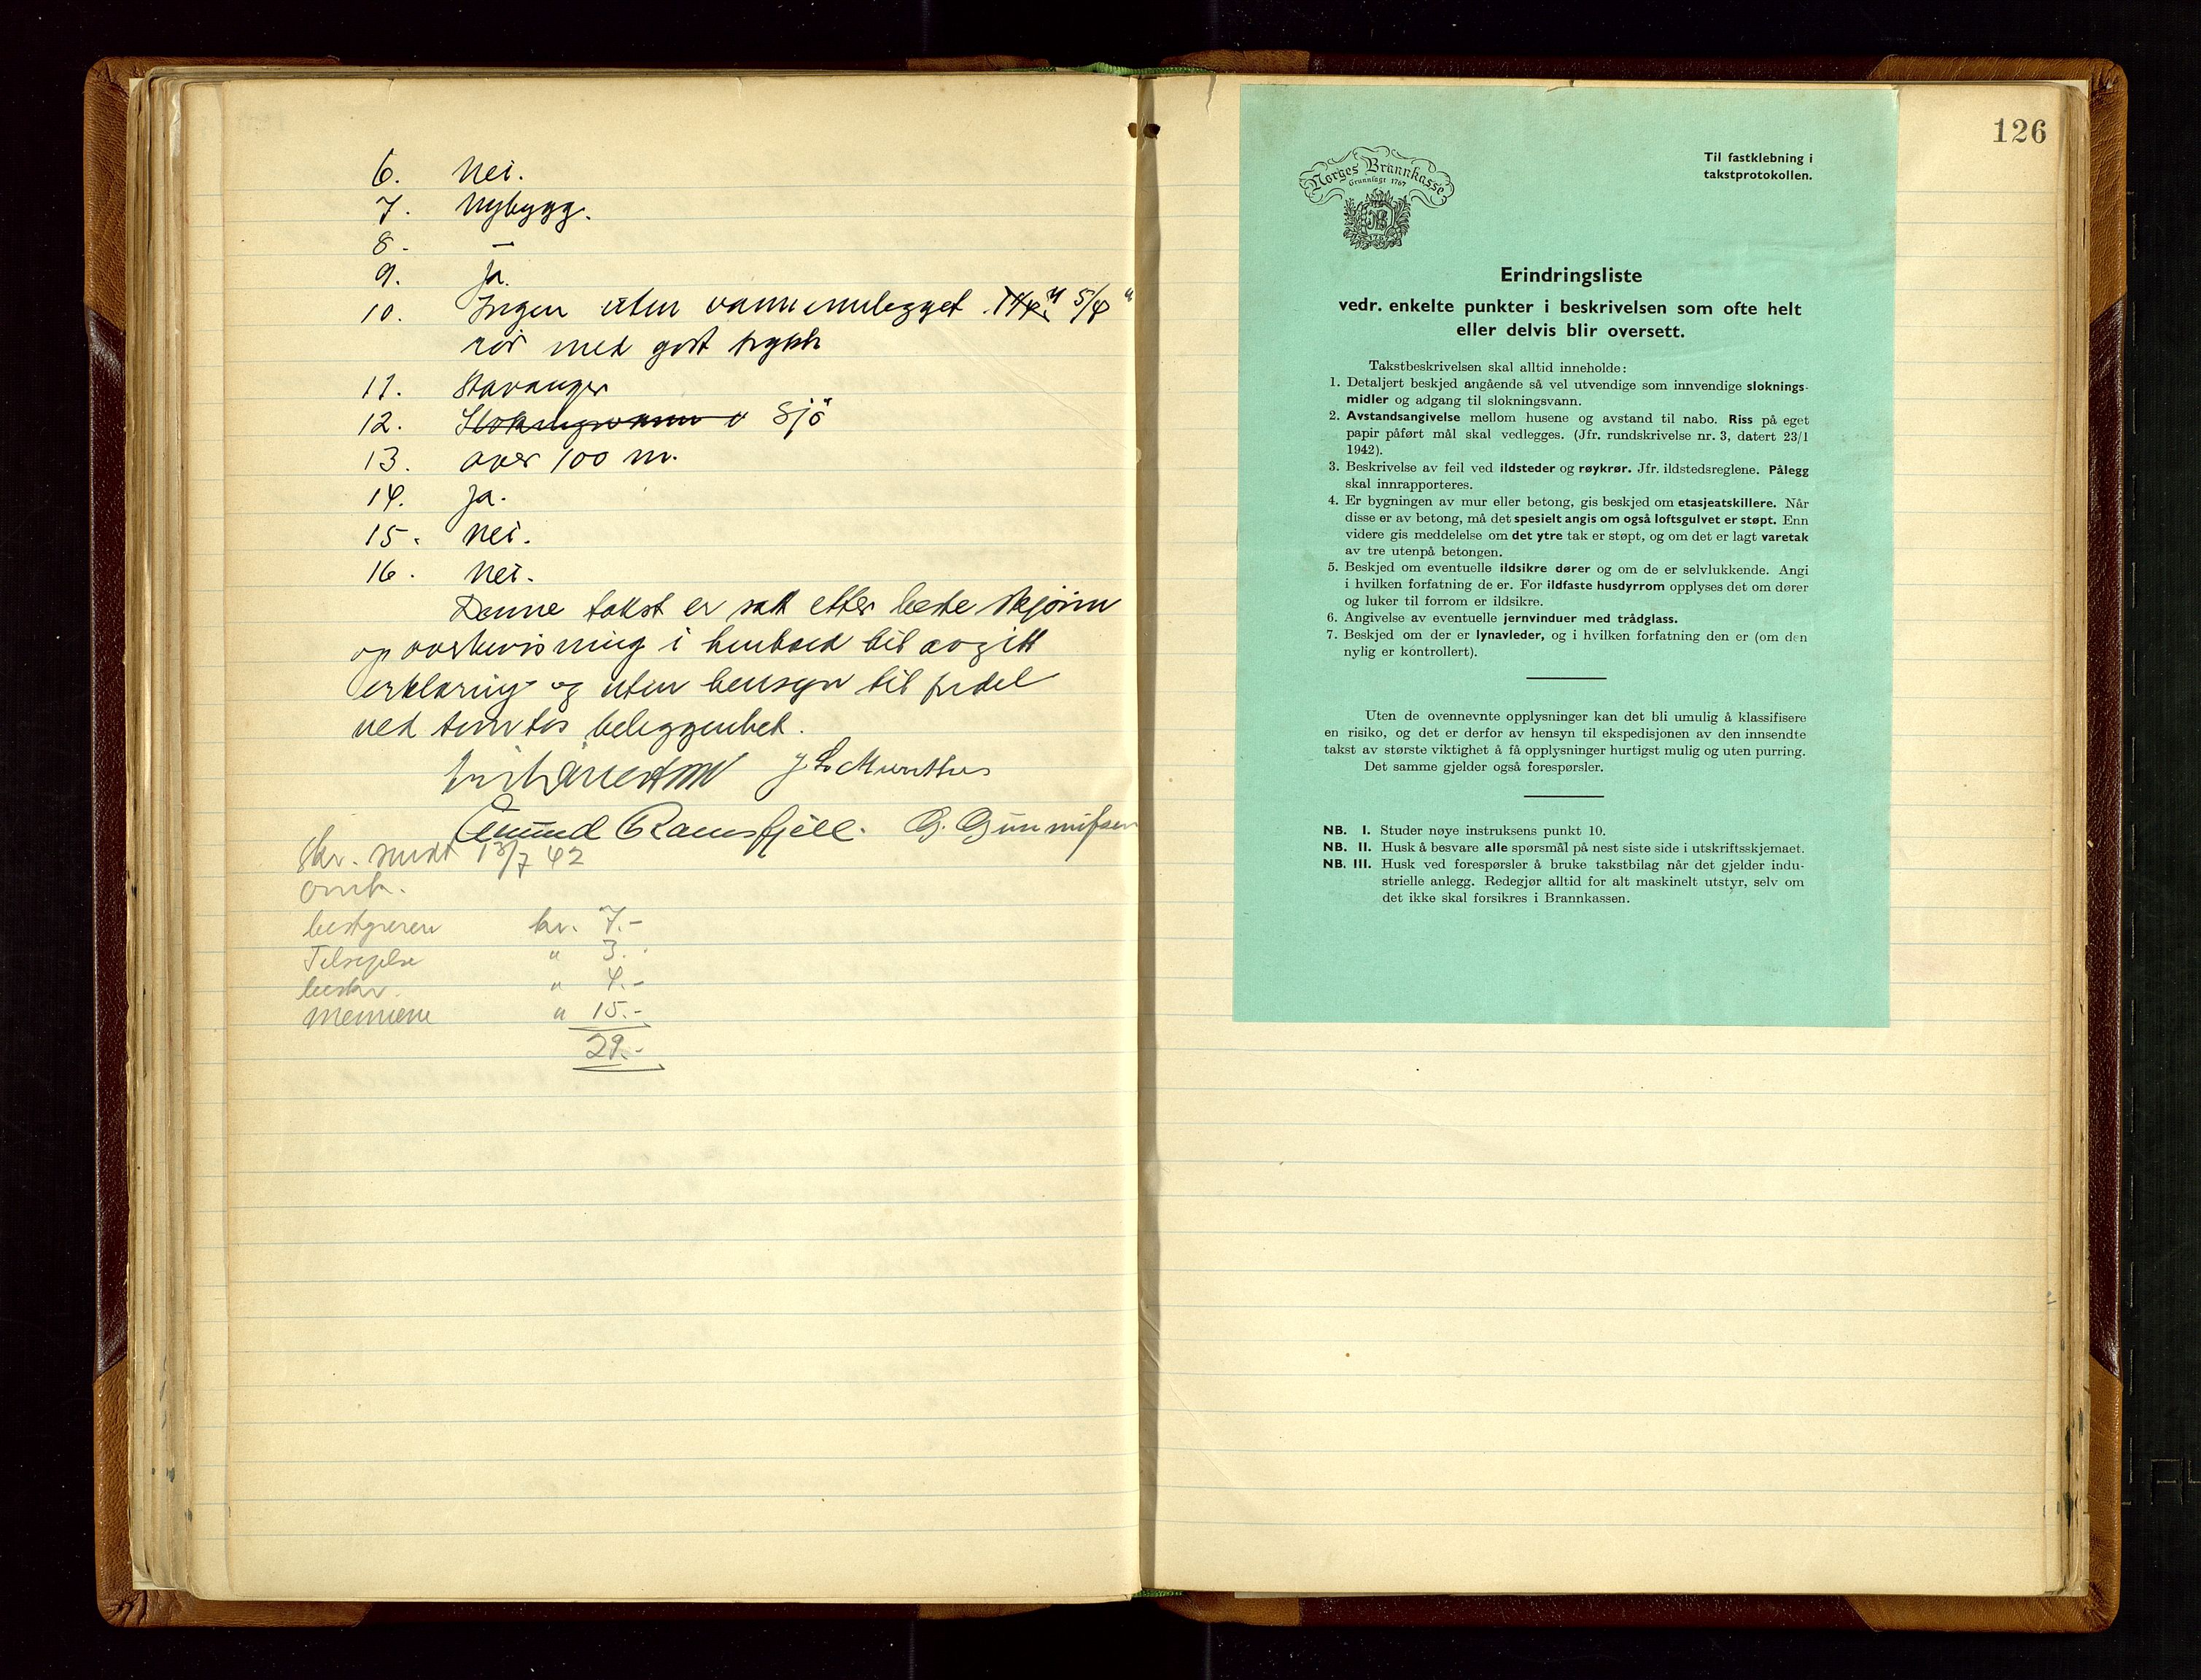 6. Nei.
7. Nybygg.
8. —
9. Ja.
10. Ingen uten vann innlegget. 5/4"
rör med godt trykk
11. Stavanger
12. Slokningsvann i Sjö
13. over 100 m.
14. Ja.
15. Nei.
16. Nei.
Denne takst er satt etter beste skjønn
og overbevisning i henhold til avgitt
erklæring og uten hensyn til fordel
ved tomtes beliggenhet.
Amund Ramsfjell. G. Gunnufsen
Skr. sendt 13/7 42
Omk.
bestyreren kr. 7.-
Tilsigelse " 3.-
beskr. " 4.-
Mennene " 15.-
29.-
126
Norges Brannkasse
Grunnlagt 1767
Til fastklebning i
takstprotokollen.
Erindringsliste
vedr. enkelte punkter i beskrivelsen som ofte helt
eller delvis blir oversett.
Takstbeskrivelsen skal alltid inneholde:
1. Detaljert beskjed angående så vel utvendige som innvendige sloknings-
midler og adgang til slokningsvann.
2. Avstandsangivelse mellom husene og avstand til nabo. Riss på eget
papir påført mål skal vedlegges. (Jfr. rundskrivelse nr. 3, datert 23/1
1942).
3. Beskrivelse av feil ved ildsteder og røykrør. Jfr. ildstedsreglene. Pålegg
skal innrapporteres.
4. Er bygningen av mur eller betong, gis beskjed om etasjeatskillere. Når
disse er av betong, må det spesielt angis om også loftsgulvet er støpt. Enn
videre gis meddelelse om det ytre tak er støpt, og om det er lagt varetak
av tre utenpå betongen.
5. Beskjed om eventuelle ildsikre dører og om de er selvlukkende. Angi
i hvilken forfatning de er. For ildfaste husdyrrom opplyses det om dører
og luker til forrom er ildsikre.
6. Angivelse av eventuelle jernvinduer med trådglass.
7. Beskjed om der er lynavleder, og i hvilken forfatning den er (om den
nylig er kontrollert).
Uten de ovennevnte opplysninger kan det bli umulig å klassifisere
en risiko, og det er derfor av hensyn til ekspedisjonen av den innsendte
takst av største viktighet å få opplysninger hurtigst mulig og uten purring.
Det samme gjelder også forespørsler.
NB. I. Studer nøye instruksens punkt 10.
NB. II. Husk å besvare alle spørsmål på nest siste side i utskriftsskjemaet.
NB. III. Husk ved forespørsler å bruke takstbilag når det gjelder indu-
strielle anlegg. Redegjør alltid for alt maskinelt utstyr, selv om
det ikke skal forsikres i Brannkassen.